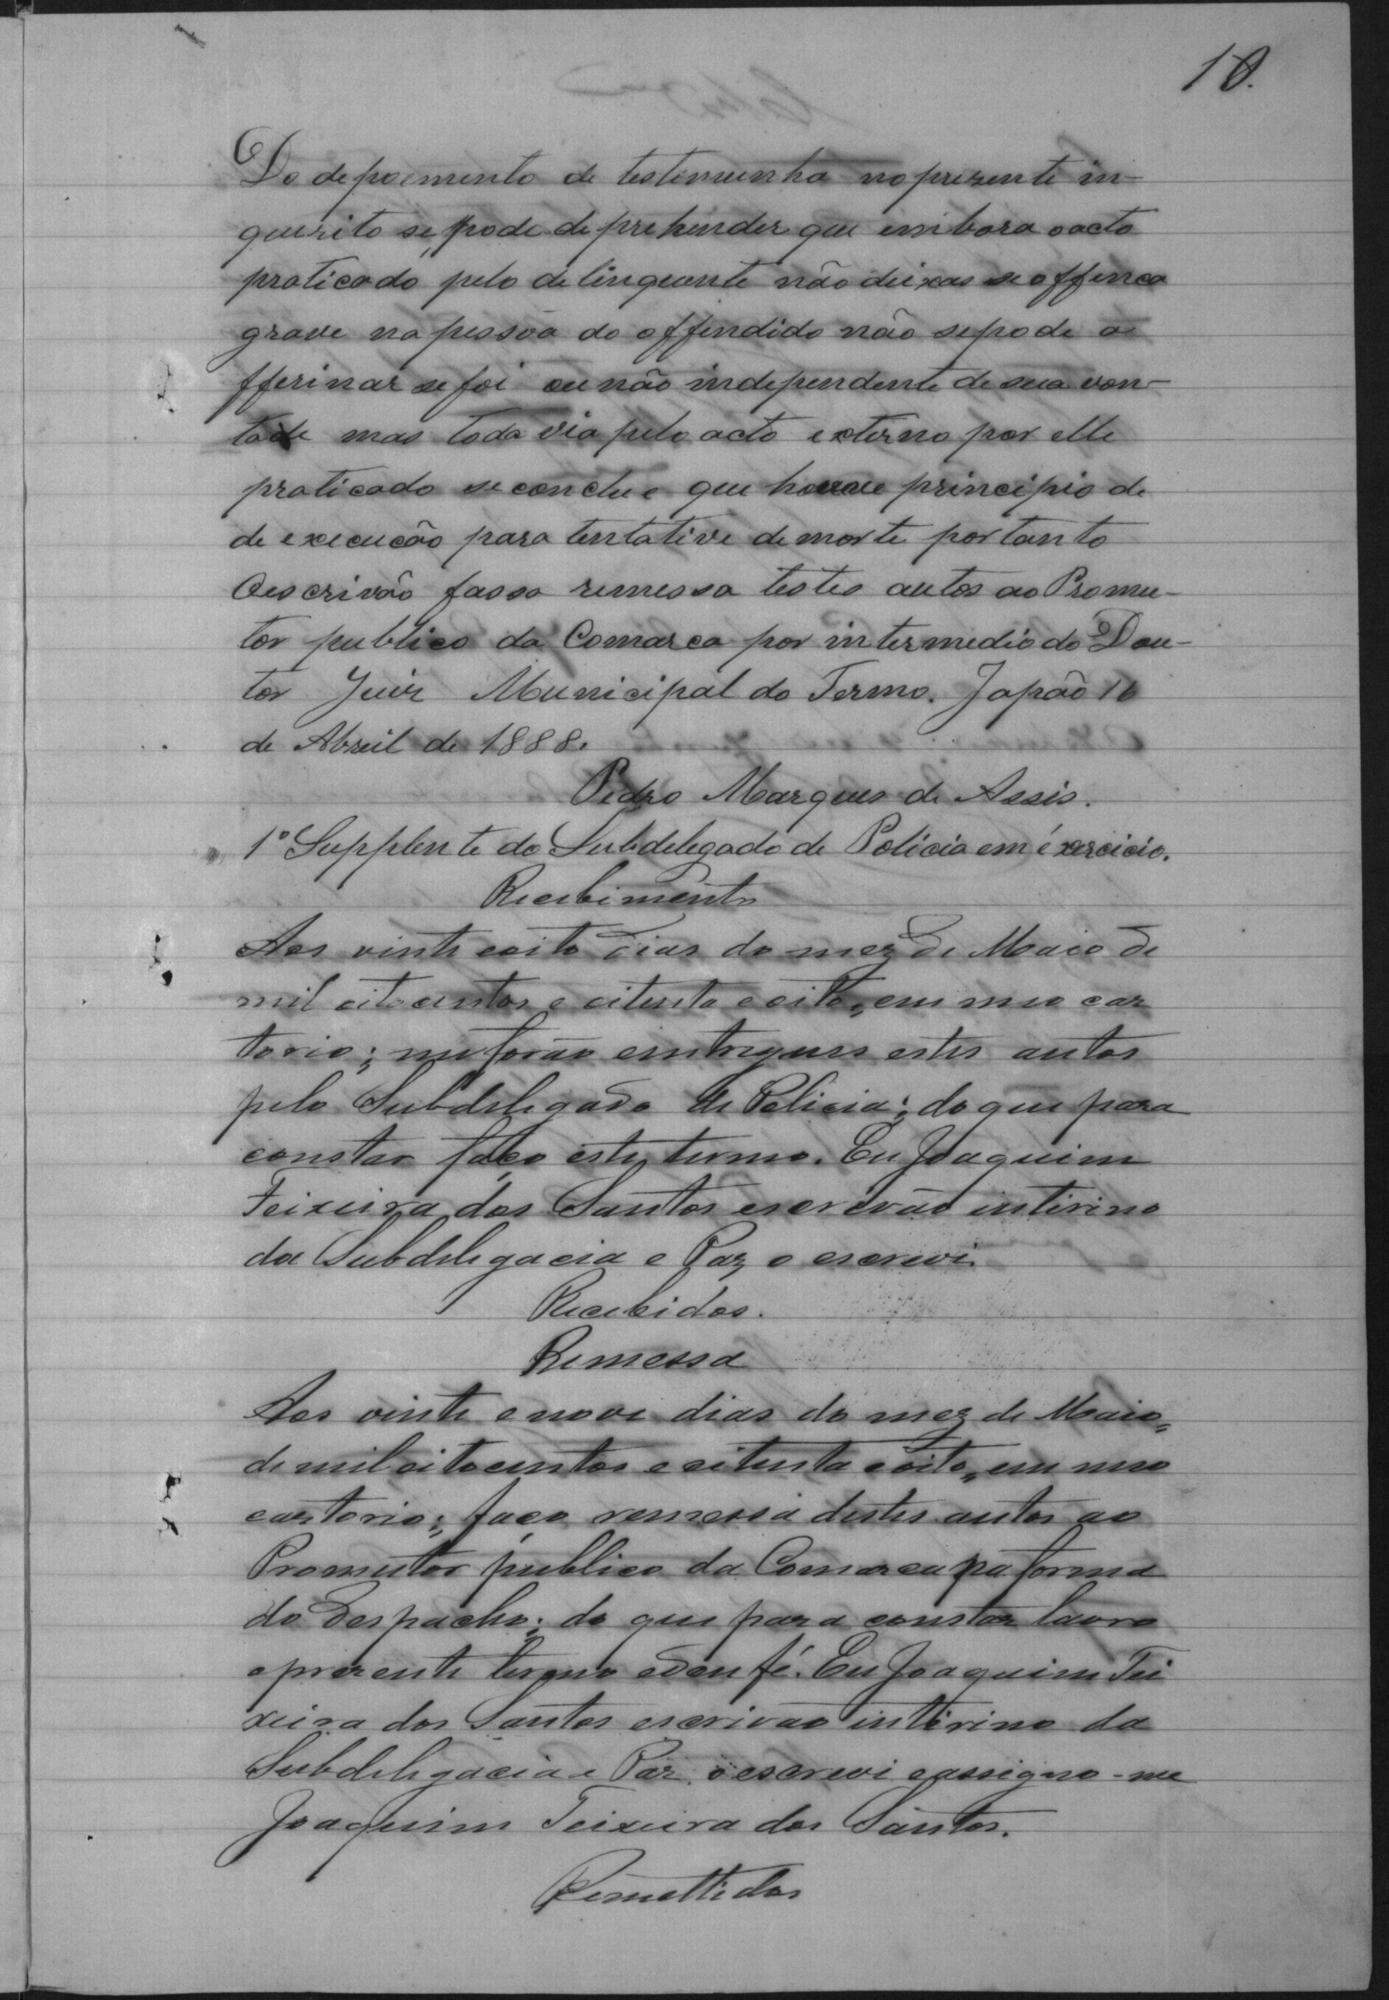 10.
Do depoimento de testemunha no prezente in-
querito se pode deprehender que embora o acto
praticado pelo delinquente não deixas se offenca
grave na pessoa do offendido não se pode a
fferinar se foi ou não independente de sua von-
tade mas toda via pelo acto externo por elle
praticado se conclue que houve principio de
de execução para tentative de morte portanto
O escrivão fassa remessa testes autos ao Promu-
tor publico da Comarca por intermedio do Dou-
tor Juiz Municipal do Termo. Japão 16
de Abril de 1888.
Pedro Marques de Assis.
1º Supplente do Subdelegado de Policia em éxercicio.
Recebimento
Aos vinte e oito dias do mez de Maio de
mil oitocentos e oitenta e oito, em meo car
torio; me forão emtregues estes autos
pelo Subdelegado de Policia; do que para
constar faço este termo. Eu Joaquim
Teixeira dos Santos escrivão intirino
da Subdelegacia e Paz o escrevi
Recebidos.
Remessa
Aos vinte e nove dias do mez de Maio,
de mil oitocentos e oitenta e oito, em meo
cartorio; faço remessa destes autos ao
Promutor publico da Comarca na forma
do Despacho; do que para constar lavro
o prezente termo e dou fé. Eu Joaquim Tei
xeira dos Santos escrivão intirino da
Subdelegacia e Paz, o escrevi e assigno-me
Joaquim Teixeira dos Santos.
Remettidos